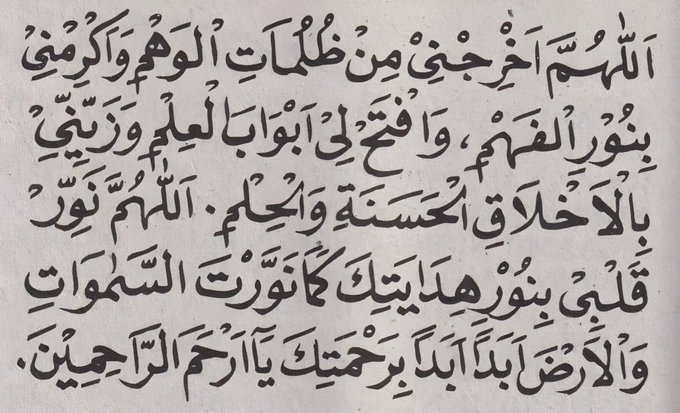 اَللّٰهُمَّ اَخْرِجْنِيْ مِنْ ظُلُمَاتِ الْوَهْمِ وَاَكْرِمْنِيْ
بِنُوْرِ الْفَهْمِ، وَافْتَحْ لِيْ اَبْوَابَ الْعِلْمِ وَزَيِّنِّيْ
بِالْاَخْلَاقِ الْحَسَنَةِ وَالْحِلْمِ. اَللّٰهُمَّ نَوِّرْ
قَلْبِيْ بِنُوْرِ هِدَايَتِكَ كَمَا نَوَّرْتَ السَّمٰوَاتِ
وَالْاَرْضَ اَبَدًا اَبَدًا بِرَحْمَتِكَ يَآ اَرْحَمَ الرَّاحِمِيْنَ.